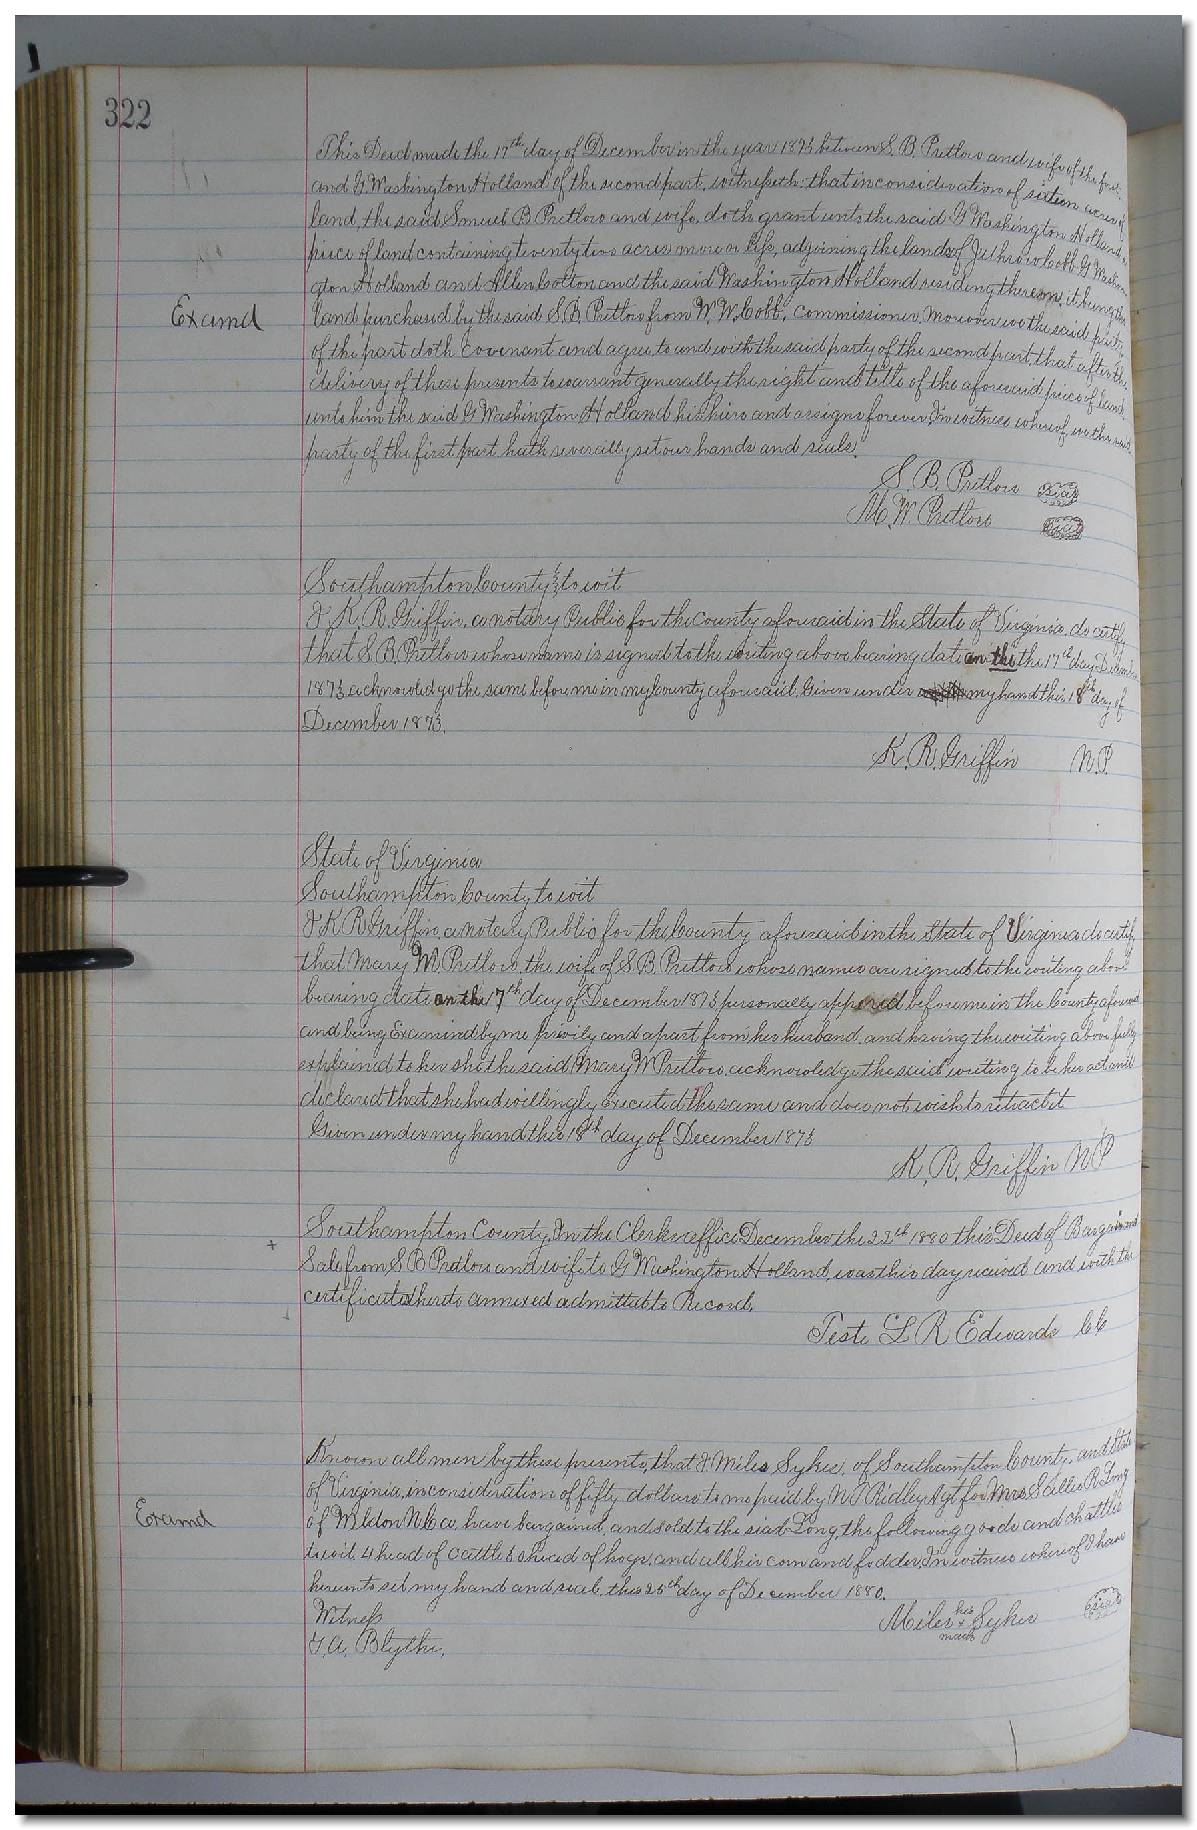 322
This Deed made the 17th day of December in the year 1873 between S. B. Pretlow and wife of the first
and G Washington Holland of the second part, witnesseth: that in consideration of sixteen acres of
land, the said Smuel B Pretlow and wife, doth grant unto the said G Washington Holland, a
piece of land containing twenty two acres more or less, adjoining the lands of Jethrow Cobb G Washin
gton Holland and Allen Cotton and the said Washington Holland residing thereon, it being the
Examd
land purchased by the said S. B. Pretlow from W. W. Cobb, Commissioner. Moreover we the said party
of the part doth covenant and agree to and with the said party of the second part, that after the
delivery of these presents to warrant generally the right and title of the aforesaid piece of land
unto him the said G Washington Holland his heirs and assigns forever, In witness whereof, we the said
party of the first part hath severally set our hands and seals.
S. B. Pretlow seal
M. W. Pretlow seal
Southampton County, to wit
I K. R. Griffin, a notary Public for the County aforesaid in the State of Virginia, do certify
that S. B. Pretlow whose name is signed to the writing above bearing date on the the 17th day December
1873 acknowledge the same before me in my county aforesaid. Given under my hand this 18th day of
December 1873.
K. R. Griffin N.P.
State of Virginia
Southampton County to wit
I K R Griffin, a notary Public for the County aforesaid in the State of Virginia do certify
that Mary W Pretlow, the wife of S B Pretlow whose names are signed to the writing above
bearing date on the 17th day of December 1873 personally appered before me in the County aforesaid
and being Examined by me privily and apart from her husband, and having the writing above fully
explained to her she the said Mary W Pretlow, acknowledge the said writing to be her act and
declared that she had willingly executed the same and does not wish to retract it
Given under my hand this 18th day of December 1873
K. R. Griffin NP
Southampton County, In the Clerks office December the 22th 1880 this Deed of Bargain and
Sale from S B Pretlow and wife to G Washington Holland, was this day received and with the
certificates thereto annexed admitted to Record.
Teste L R Edwards CC
Known all men by these presents, that I Miles Sykes, of Southampton County, and State
of Virginia, in consideration of fifty dollars to me paid by N T Ridley Agt for Mrs Sallie R Long
Examd
of Weldon N C a. have bargained, and sold to the siad Long, the following goods and chattles
to wit 4 head of cattle 5 head of hogs, and all his corn and fodder, In witness whereof I have
hereunto set my hand and seal, this 25th day of December 1880.
Witness
Miles his x mark Sykes seal
T. A. Blythe.